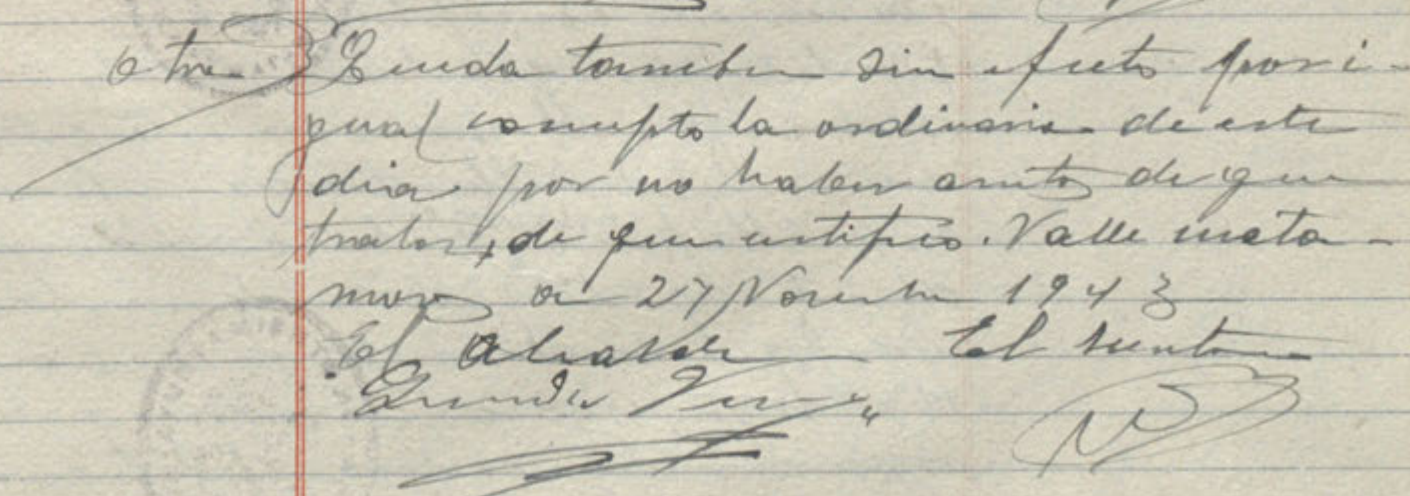 Otra Queda tambien sin efecto por i-
gual concepto la ordinaria de este
dia por no haber asuntos de que
tratar, de que certifico. Valle mata-
moros a 27 Noviembre 1943
El Alcalde El Secretario